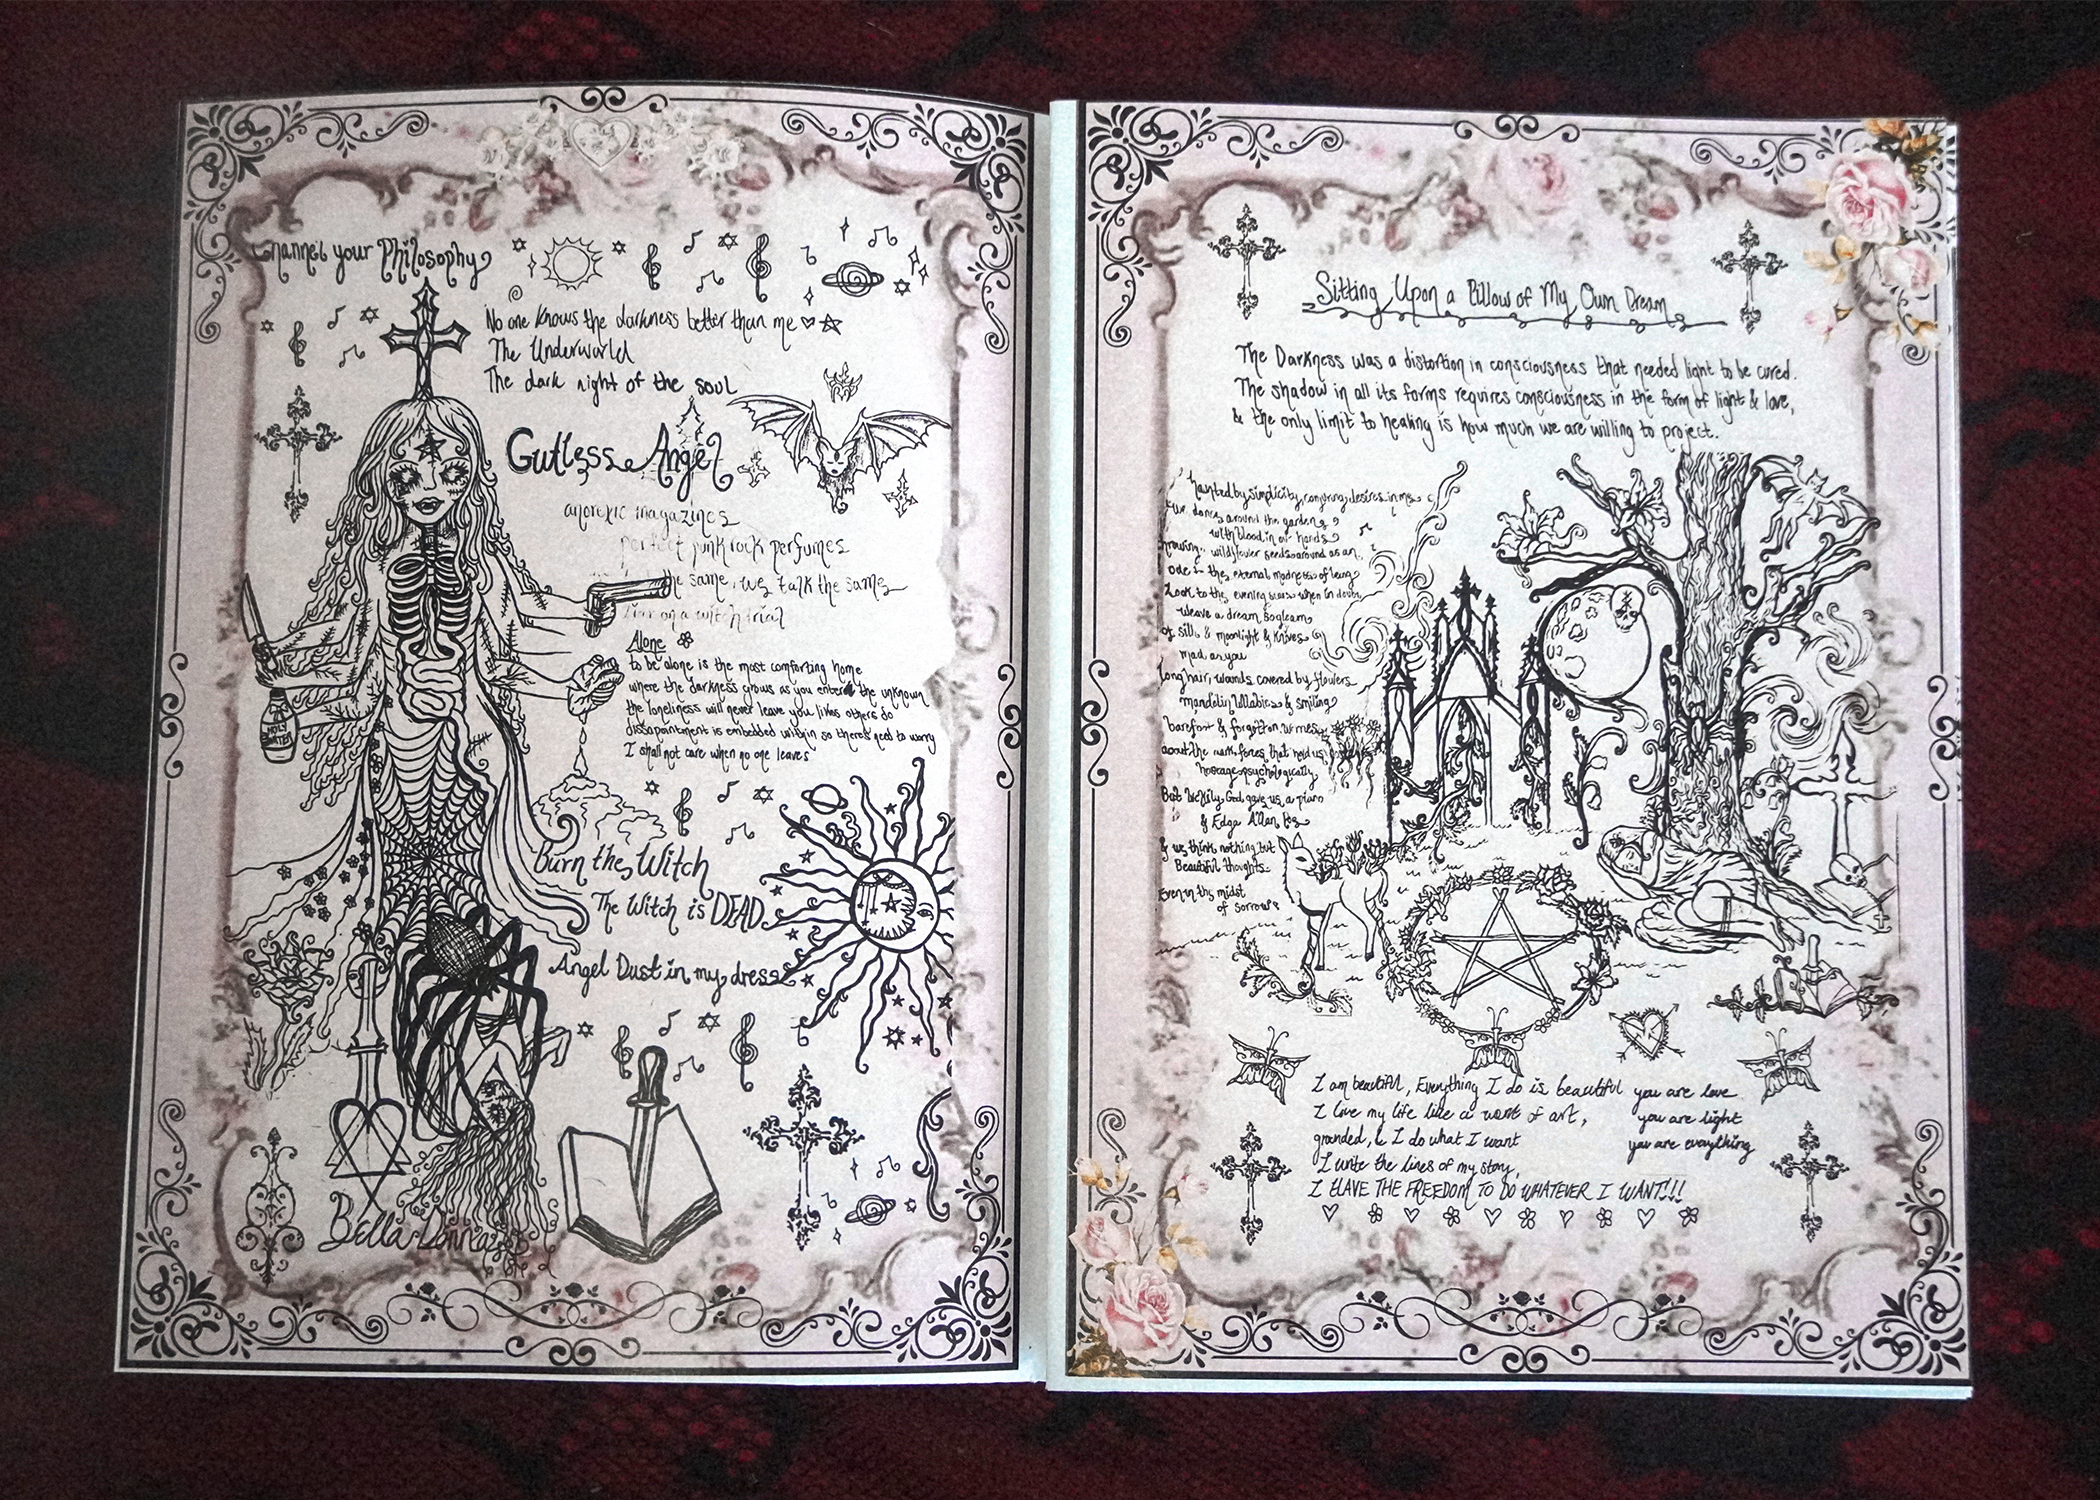 Channel your Philosophy
No one knows the darkness better than me
The Underworld
The dark night of the soul
Gutless Angel
anorexic magazines
perfect punk rock perfumes
the same, we talk the same
on a witch trial
HOLY WATER
Alone
to be alone is the most comforting home
where the darkness grows as you entered the unknown
the loneliness will never leave you likes others do
dissapointment is embedded within so theres need to worry
I shall not care when no one leaves
burn the Witch
The Witch is DEAD
Angel Dust in my dress
Bella Donna
Sitting Upon a Pillow of My Own Dream
The Darkness was a distortion in consciousness that needed light to be cured.
The shadow in all its forms requires consciousness in the form of light & love,
& the only limit to healing is how much we are willing to project.
haunted by simplicity, conjuring desires in me
we dance around the garden
with blood in our hands
throwing wildflower seeds around as an
ode to the eternal madness of being
Look to the evening when in doubt
weave a dream
of silk & moonlight & knives
mad as you
Long hair, wounds covered by flowers
mandolin lullabies & smiling
barefoot & forgotten
about the dark forces that hold us
hostage psychologically
But God gave us a piano
& Edgar Allan Poe
& we think nothing but
Beautiful thoughts
Even in the midst
of sorrow
I am beautiful, Everything I do is beautiful
I love my life like a work of art,
grounded, & I do what I want
I write the lines of my story,
I HAVE THE FREEDOM TO DO WHATEVER I WANT!!!
you are love
you are light
you are everything